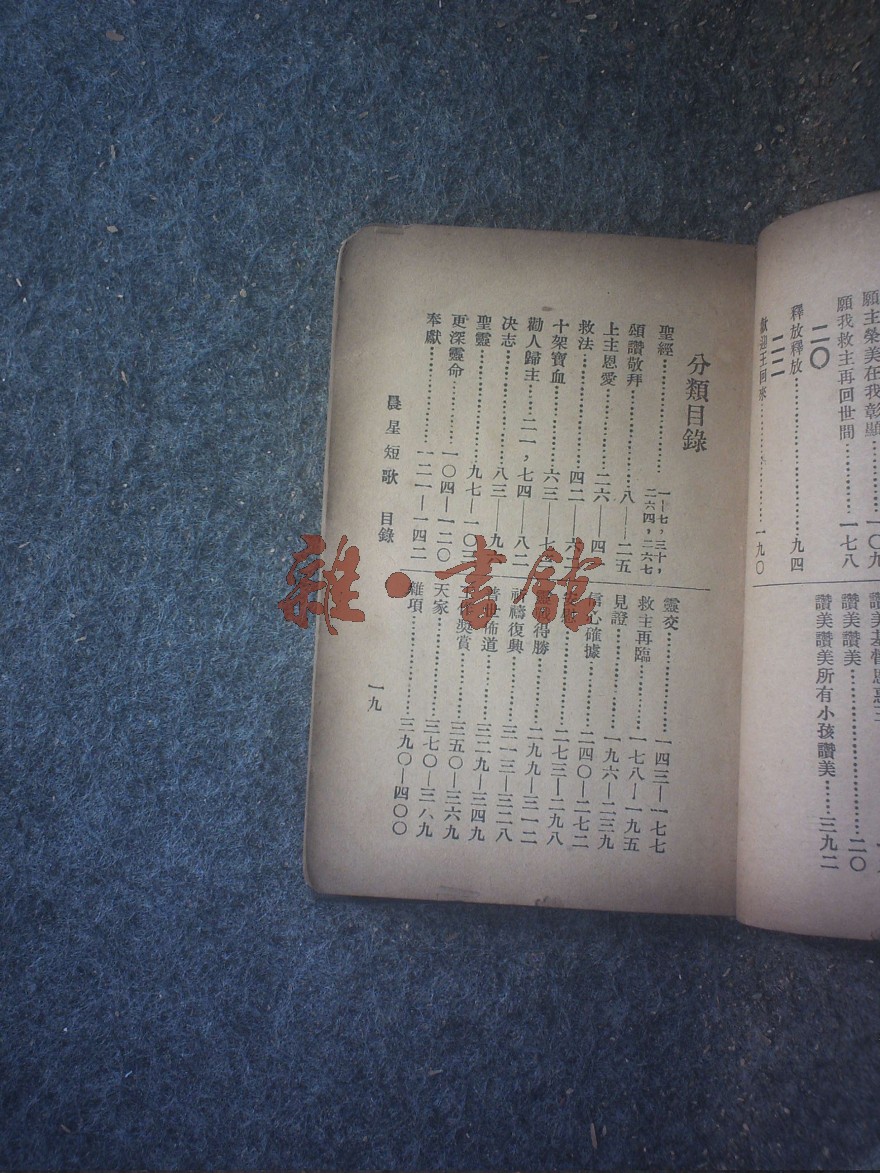 願主榮美在我彰顯……一〇九
願我救主再回世間……一七八
二〇
釋放釋放……九四
二二
歡迎王回來……一九〇
讚美讚美……二〇
讚美讚美所有小孩讚美……三九二
分類目錄
聖經……一—七,三十,二六四,二六七
頌讚敬拜……八—二五
上主恩愛……二六—四
救法……四二—六
十架寶血……六三—七
勸人歸主……二一,七四—八二
决志……八三—九
聖靈……九七—一〇三
更深靈命……一〇四—一二〇
奉獻……一二一—一四二
靈交……一四三—一七七
救主再臨……一七八—一九五
見證……一九六—二三九
信心確據……二四〇—二七二
二七三—二九八
得勝……二九九—三一二
祈禱復興……三一三—三二八
普世佈道……三二九—三四九
獎賞……三五〇—三六九
天家……三七〇—三八九
雜項……三九〇—四〇〇
晨星短歌 目錄
一九
雜·書館